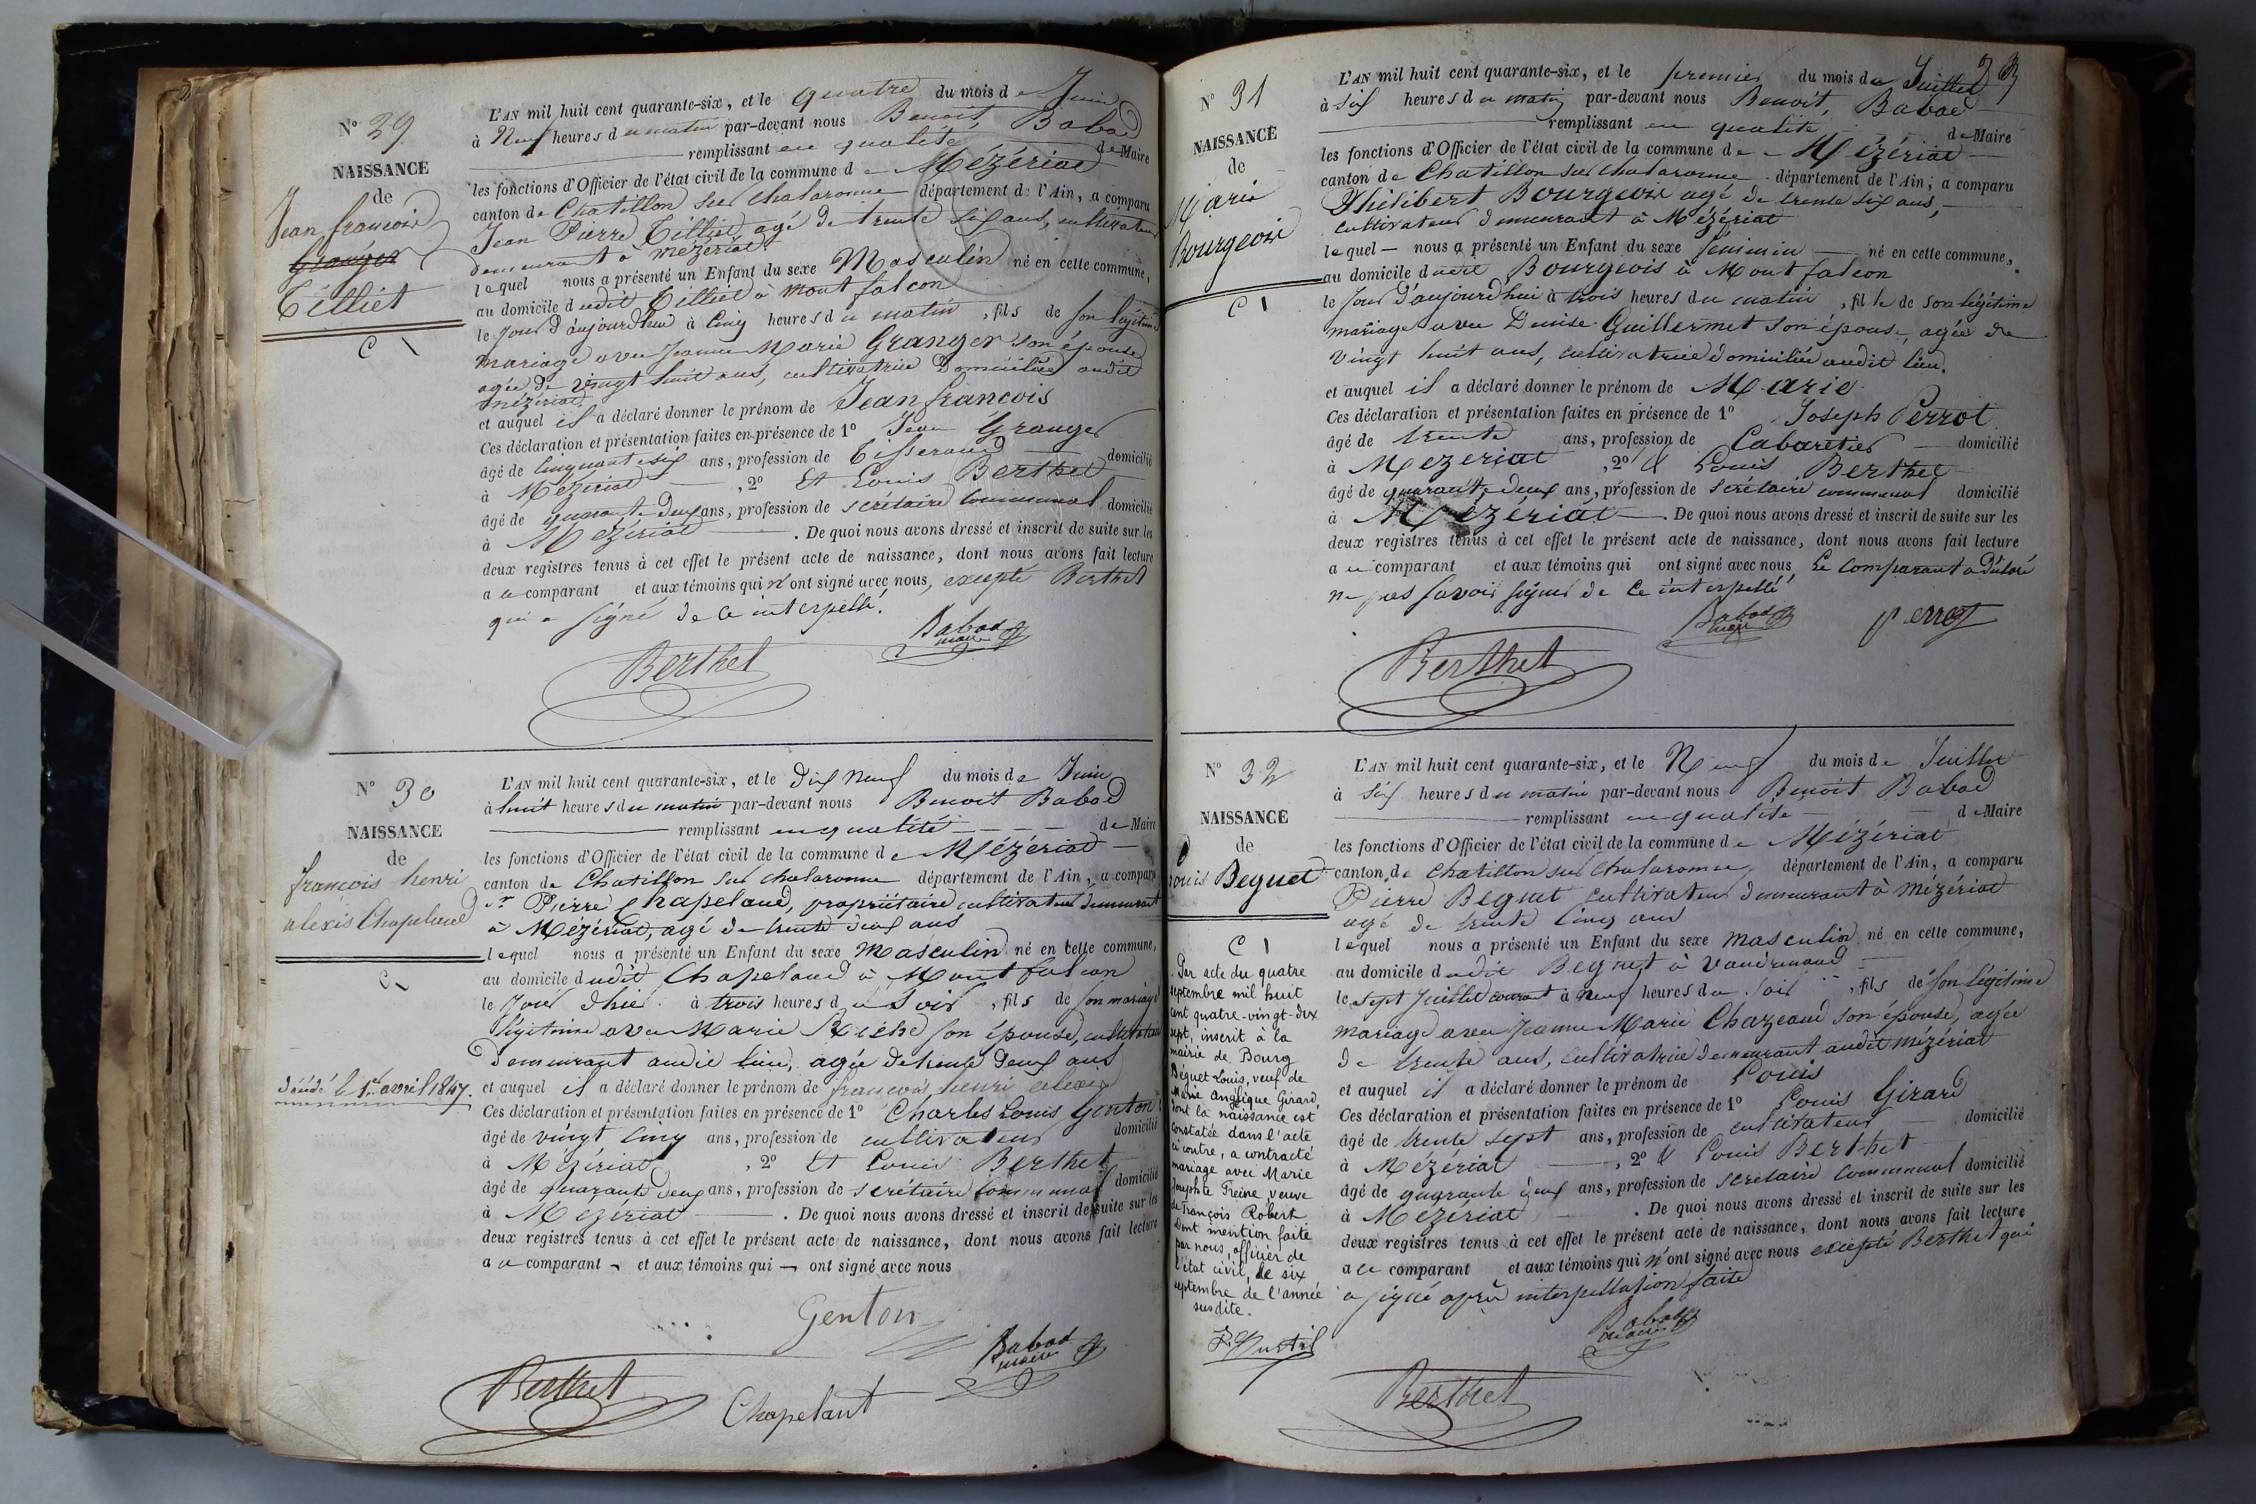 N° 29
NAISSANCE
de
Jean françois
Granger
Tilliet
C
L'AN mil huit cent quarante-six, et le quatre du mois de Juin
à Neuf heures du matin par-devant nous Benoit Babad
remplissant en qualité de Maire
les fonctions d'Officier de l'état civil de la commune de Mézériat
canton de Chatillon sur chalaronne département de l'Ain, a comparu
Jean Pierre Tilliet, agé de trente six ans, cultivateur
demeurant à mézériat
lequel nous a présenté un Enfant du sexe Masculin né en cette commune,
au domicile dudit Tilliet à Mont falcon
le jour d'aujourd'hui à cinq heures du matin, fils de son légitime
mariage avec Jeanne Marie Granger son épouse
agée de vingt huit ans, cultivatrice domiciliée audit
mézériat
et auquel il a déclaré donner le prénom de Jean francois
Ces déclaration et présentation faites en présence de 1° Jean Granger
âgé de cinquante six ans, profession de Tisserand domicilié
à Mézériat, 2° Et Louis Berthet
âgé de quarante deux ans, profession de secrétaire communal domicilié
à Mézériat. De quoi nous avons dressé et inscrit de suite sur les
deux registres tenus à cet effet le présent acte de naissance, dont nous avons fait lecture
a ce comparant et aux témoins qui n'ont signé avec nous, excepté Berthet
qui a signé de ce interpellé.
Babad
maire
Berthet
N° 30
NAISSANCE
de
francois henri
alexis Chapeland
C
décédé le 1er avril 1847.
L'AN mil huit cent quarante-six, et le dix neuf du mois de Juin
à huit heures du matin par-devant nous Benoit Babad
remplissant en qualité de Maire
les fonctions d'Officier de l'état civil de la commune de Mézériat
canton de Chatillon sur chalaronne département de l'Ain, a comparu
sr Pierre Chapeland, propriétaire cultivateur demeurant
à Mézériat, agé de trente deux ans
lequel nous a présenté un Enfant du sexe Masculin né en cette commune,
au domicile dudit Chapeland à Mont falcon
le jour d'hier à trois heures du soir, fils de son mariage
légitime avec Marie son épouse, cultivatrice
demeurant audit lieu, agée de trente deux ans
et auquel il a déclaré donner le prénom de francois henri alexis
Ces déclaration et présentation faites en présence de 1° Charles Louis Genton
âgé de vingt cinq ans, profession de cultivateur domicilié
à Mézériat, 2° Et Louis Berthet
âgé de quarante deux ans, profession de secrétaire communal domicilié
à Mézériat. De quoi nous avons dressé et inscrit de suite sur les
deux registres tenus à cet effet le présent acte de naissance, dont nous avons fait lecture
a ce comparant et aux témoins qui ont signé avec nous
Genton
Babad
maire
Berthet
Chapelant
23
N° 31
NAISSANCE
de
Marie
Bourgeois
C 1
L'AN mil huit cent quarante-six, et le premier du mois de Juillet
à six heures du matin par-devant nous Benoit Babad
remplissant en qualité de Maire
les fonctions d'Officier de l'état civil de la commune de Mézériat
canton de Chatillon sur chalaronne département de l'Ain; a comparu
Philibert Bourgeois agé de trente six ans,
cultivateur demeurant à Mézériat
lequel nous a présenté un Enfant du sexe féminin né en cette commune,
au domicile dudit Bourgeois à Mont falcon
le jour d'aujourd'hui à trois heures du matin, fille de son légitime
mariage avec Denise Guillermet son épouse, agée de
vingt huit ans, cultivatrice domiciliée audit lieu.
et auquel il a déclaré donner le prénom de Marie
Ces déclaration et présentation faites en présence de 1° Joseph Perrot
âgé de trente ans, profession de Cabaretier domicilié
à Mézériat, 2° & Louis Berthet
âgé de quarante deux ans, profession de secrétaire communal domicilié
à Mézériat. De quoi nous avons dressé et inscrit de suite sur les
deux registres tenus à cet effet le présent acte de naissance, dont nous avons fait lecture
a ce comparant et aux témoins qui ont signé avec nous Le comparant a déclaré
ne pas savoir signer de ce interpellé
Babad
maire
perrot
Berthet
N° 32
NAISSANCE
de
Louis Beguet
C 1
Par acte du quatre
septembre mil huit
cent quatre-vingt-dix
sept, inscrit à la
mairie de Bourg
Béguet Louis, veuf de
Marie Anglique Girard,
dont la naissance est
constatée dans l'acte
ci contre, a contracté
mariage avec Marie
Josephte Freine veuve
de François Robert
Dont mention faite
par nous, officier de
l'état civil, le six
septembre de l'année
susdite.
L'AN mil huit cent quarante-six, et le Neuf du mois de Juillet
à six heures du matin par-devant nous Benoit Babad
remplissant en qualité de Maire
les fonctions d'Officier de l'état civil de la commune de Mézériat
canton de Chatillon sur Chalaronne département de l'Ain, a comparu
Pierre Beguet cultivateur demeurant à Mézériat
agé de trente cinq ans
lequel nous a présenté un Enfant du sexe Masculin né en cette commune,
au domicile dudit Beguet à
le sept Juillet courant à neuf heures du soir, fils de son légitime
mariage avec Jeanne Marie Chazeaud son épouse, agée
de trente ans, cultivatrice demeurant audit mézériat
et auquel il a déclaré donner le prénom de Louis
Ces déclaration et présentation faites en présence de 1° Louis Girard
âgé de trente sept ans, profession de cultivateur domicilié
à Mézériat, 2° & Louis Berthet
âgé de quarante deux ans, profession de secrétaire communal domicilié
à Mézériat. De quoi nous avons dressé et inscrit de suite sur les
deux registres tenus à cet effet le présent acte de naissance, dont nous avons fait lecture
a ce comparant et aux témoins qui n'ont signé avec nous excepté Berthet qui
a signé après interpellation faite
Babad
maire
Berthet